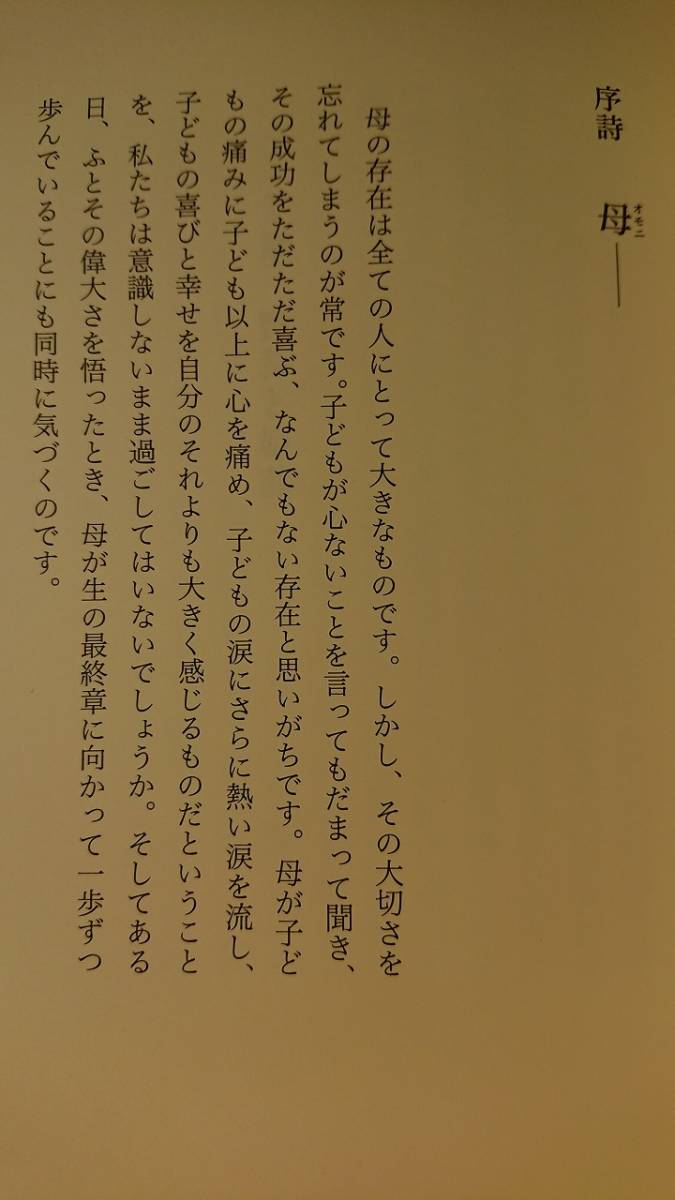 序詩　母――
オモニ
母の存在は全ての人にとって大きなものです。しかし、その大切さを
忘れてしまうのが常です。子どもが心ないことを言ってもだまって聞き、
その成功をただただ喜ぶ、なんでもない存在と思いがちです。母が子ど
もの痛みに子ども以上に心を痛め、子どもの涙にさらに熱い涙を流し、
子どもの喜びと幸せを自分のそれよりも大きく感じるものだということ
を、私たちは意識しないまま過ごしてはいないでしょうか。そしてある
日、ふとその偉大さを悟ったとき、母が生の最終章に向かって一歩ずつ
歩んでいることにも同時に気づくのです。